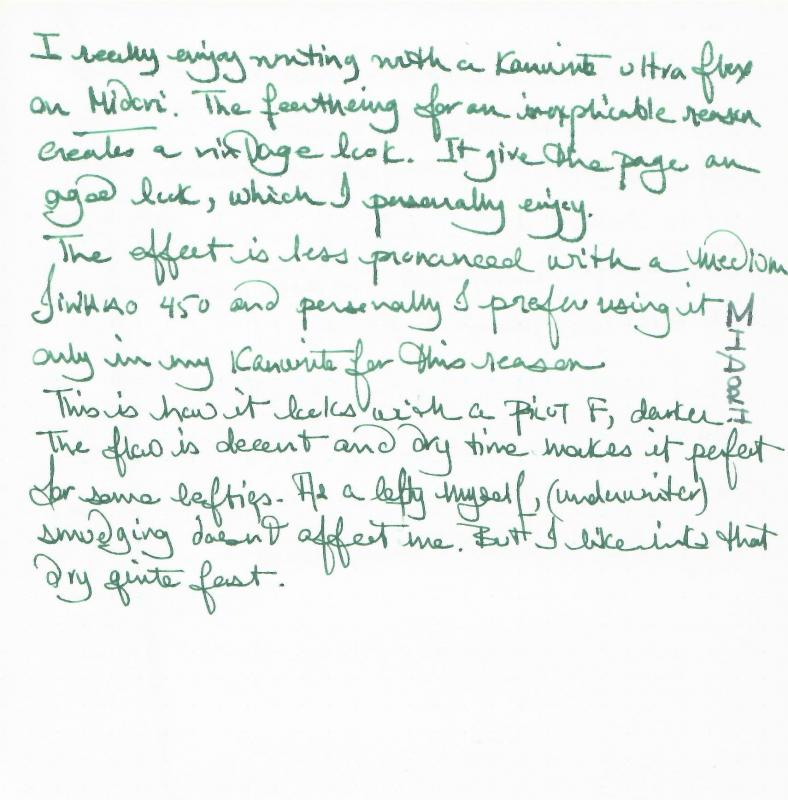 I really enjoy writing with a Kanwrite ultra flex
on Midori. The feathering for an inexplicable reason
creates a vintage look. It give the page an
aged look, which I personally enjoy.
The effect is less pronounced with a medium
Jinhao 450 and personally I prefer using it
only in my Kanwrite for this reason
This is how it looks with a Pilot F, darker.
The flow is decent and dry time makes it perfect
for some lefties. As a lefty myself, (underwriter)
smudging doesn't affect me. But I like inks that
dry quite fast.
MIDORI